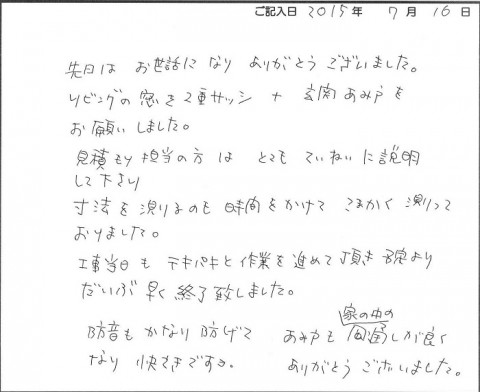 ご記入日 2015年 7月 16日
先日は お世話に なり ありがとう ございました。
リビングの 窓を 2重サッシ + 玄関 あみ戸を
お願い しました。
見積もり 担当の方 は とても ていねい に 説明
して 下さり
寸法を 測りるのも 時間を かけて こまかく 測って
おりました。
工事当日も テキパキと 作業を 進めて 頂き 予定より
だいぶ 早く 終了 致しました。
防音も かなり 防げて あみ戸も 家の中の 風通しが 良く
なり 快てきですゐ。 ありがとう ございました。